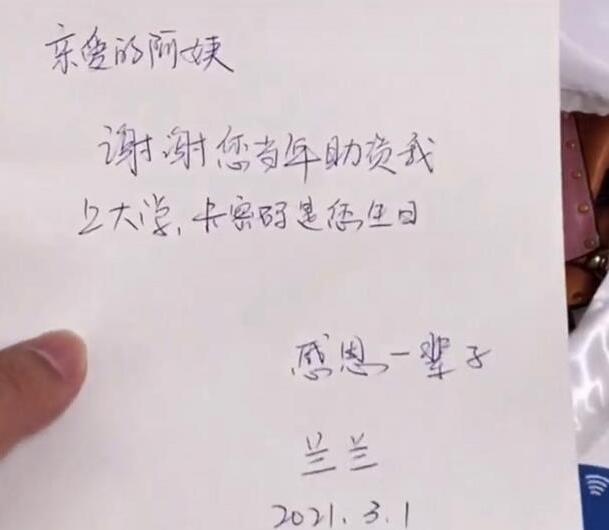 亲爱的阿姨
谢谢您当年助资我
上大学，卡密码是您生日
感恩一辈子
兰兰
2021.3.1